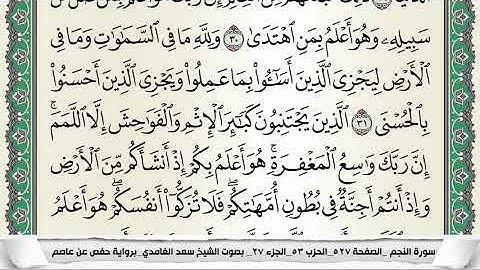 سَبِيلِهِۦ وَهُوَ أَعْلَمُ بِمَنِ ٱهْتَدَىٰ ٣٠ وَلِلَّهِ مَا فِي ٱلسَّمَٰوَٰتِ وَمَا فِي
ٱلْأَرْضِ لِيَجْزِيَ ٱلَّذِينَ أَسَٰٓـُٔوا۟ بِمَا عَمِلُوا۟ وَيَجْزِيَ ٱلَّذِينَ أَحْسَنُوا۟
بِٱلْحُسْنَى ٣١ ٱلَّذِينَ يَجْتَنِبُونَ كَبَٰٓئِرَ ٱلْإِثْمِ وَٱلْفَوَٰحِشَ إِلَّا ٱللَّمَمَ ۚ
إِنَّ رَبَّكَ وَٰسِعُ ٱلْمَغْفِرَةِ ۚ هُوَ أَعْلَمُ بِكُمْ إِذْ أَنشَأَكُم مِّنَ ٱلْأَرْضِ
وَإِذْ أَنتُمْ أَجِنَّةٌ فِي بُطُونِ أُمَّهَٰتِكُمْ ۖ فَلَا تُزَكُّوٓا۟ أَنفُسَكُمْ ۖ هُوَ أَعْلَمُ
سورة النجم _الصفحة ٥٢٧_الحزب ٥٣_الجزء ٢٧_ بصوت الشيخ سعد الغامدي_برواية حفص عن عاصم